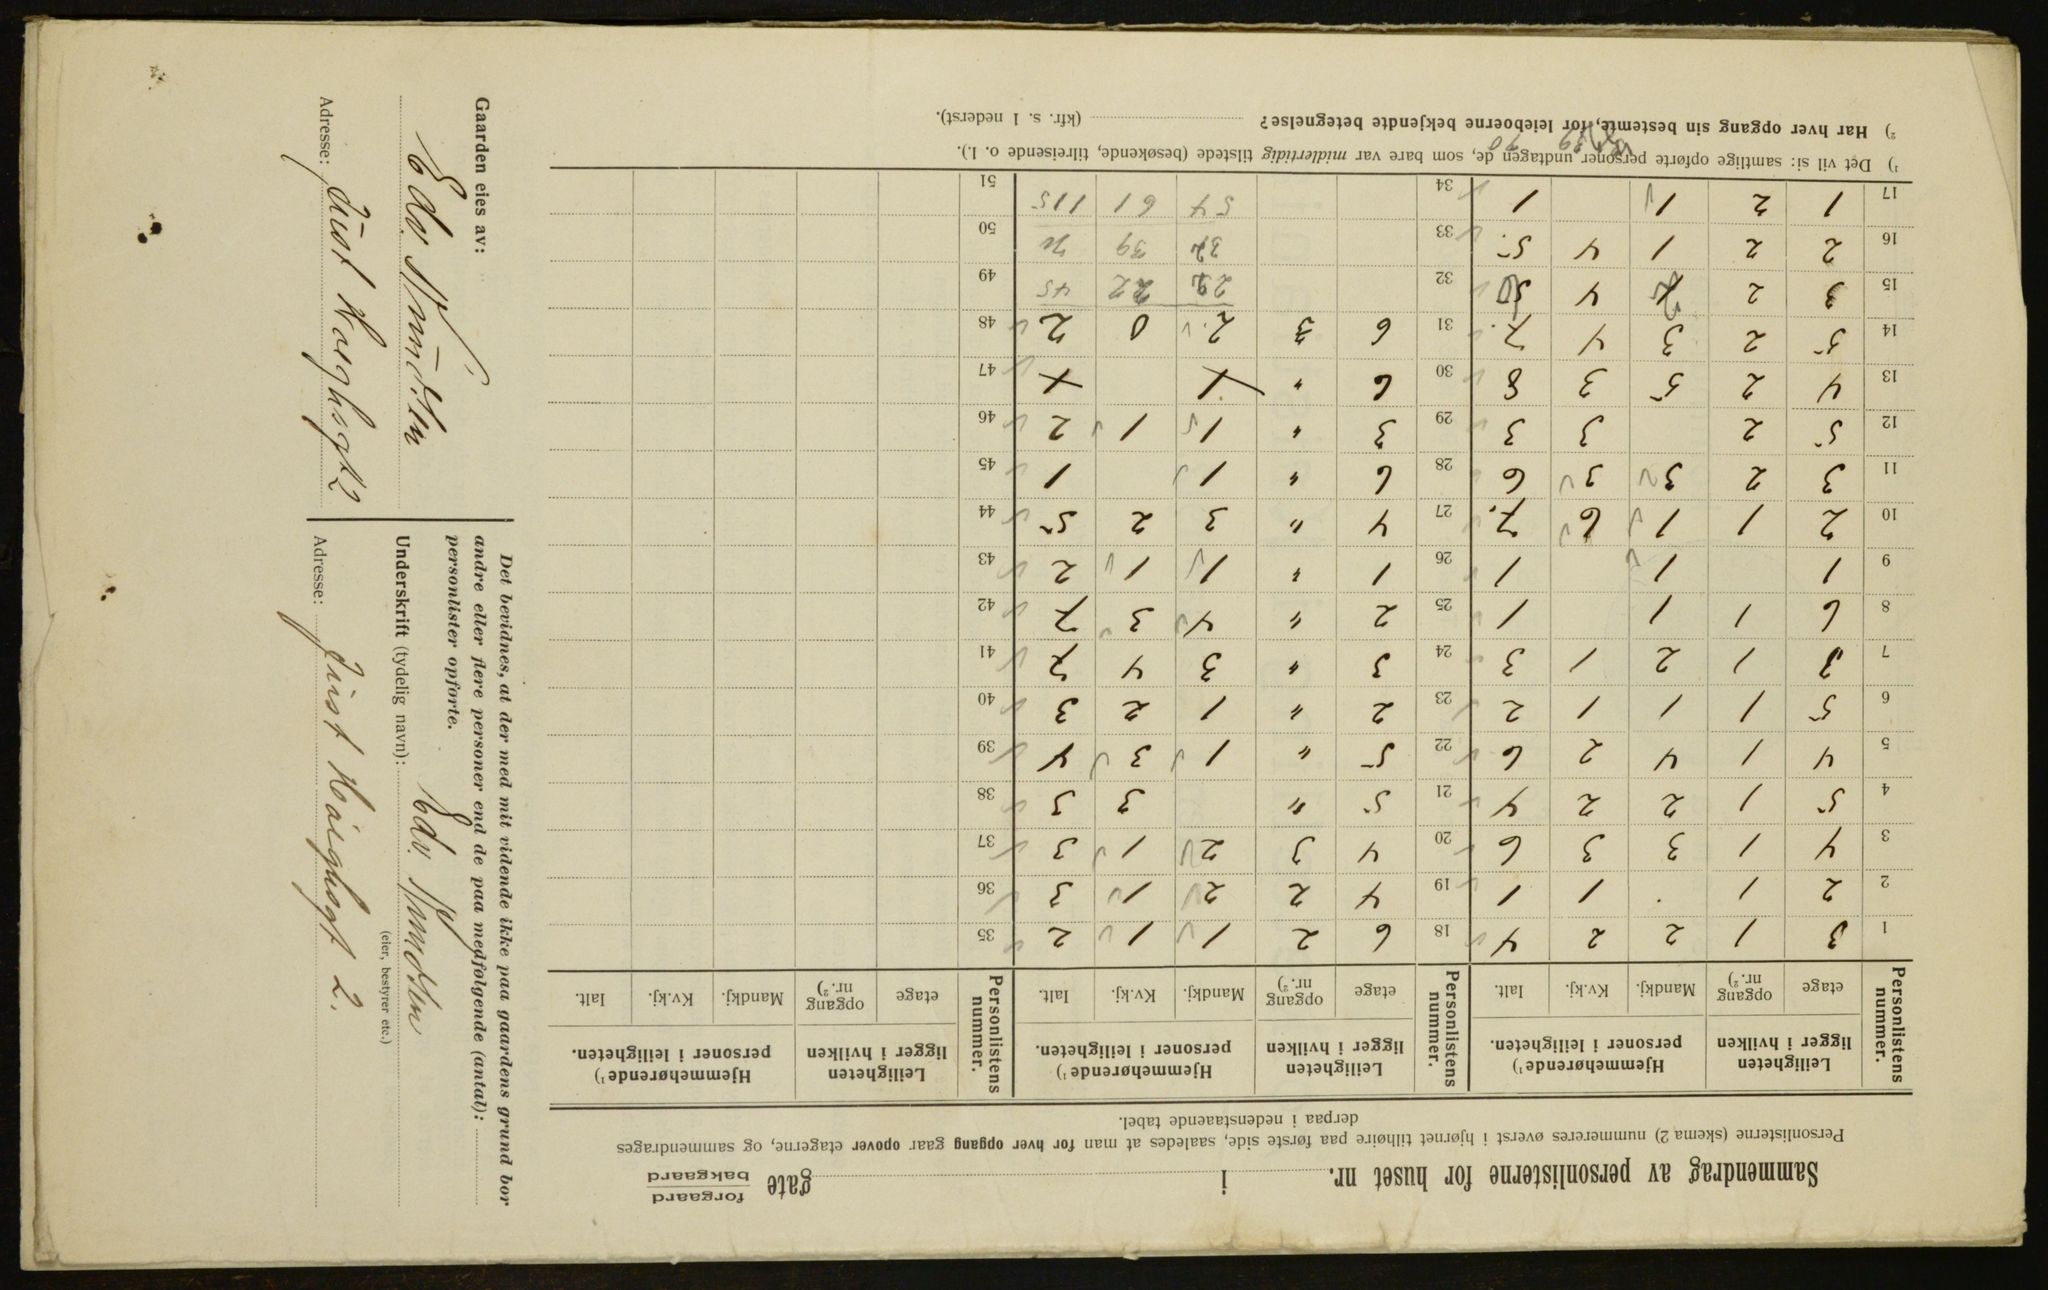 Sammendrag av personlisterne for huset nr. i gate forgaard
bakgaard
Personlisterne (skema 2) nummereres øverst i hjørnet tilhøire paa første side, saaledes at man for hver opgang gaar opover etagerne, og sammendrages
derpaa i nedenstaaende tabel.
Personlistens nummer. Leiligheten ligger i hvilken Hjemmehørende ¹) personer i leiligheten. Personlistens nummer. Leiligheten ligger i hvilken Hjemmehørende ¹) personer i leiligheten. Personlistens nummer. Leiligheten ligger i hvilken Hjemmehørende ¹) personer i leiligheten.
etage opgang nr. ²) Mandkj. Kv.kj. Ialt. etage opgang nr. ²) Mandkj. Kv.kj. Ialt. etage opgang nr. ²) Mandkj. Kv.kj. Ialt.
1 3 1 2 2 4 18 6 2 1 1 2 35
2 2 1 . 1 1 19 4 2 2 1 3 36
3 4 1 3 3 6 20 4 3 2 1 3 37
4 5 1 2 2 4 21 5 " 3 3 38
5 4 1 4 2 6 22 5 " 1 3 4 39
6 5 1 1 1 2 23 2 " 1 2 3 40
7 3 1 2 1 3 24 3 " 3 4 7 41
8 6 1 1 1 25 2 " 4 3 7 42
9 1 1 1 26 1 " 1 1 2 43
10 2 1 1 6 7 27 4 " 3 2 5 44
11 3 2 3 3 6 28 6 " 1 1 45
12 5 2 3 3 29 3 " 1 1 2 46
13 4 2 5 3 8 30 6 " 1 1 47
14 5 2 3 4 7 31 6 3 2 0 2 48
15 3 2 4 32 22 45 49
16 2 2 1 4 5 33 39 70 50
17 1 2 1 1 34 54 61 115 51
¹) Det vil si: samtlige opførte personer undtagen de, som bare var midlertidig tilstede (besøkende, tilreisende o. l.).
39 70
²) Har hver opgang sin bestemte, for leieboerne bekjendte betegnelse? (kfr. s. 1 nederst).
Det bevidnes, at der med mit vidende ikke paa gaardens grund bor
andre eller flere personer end de paa medfølgende (antal):
personlister opførte.
Underskrift (tydelig navn): Edv. Knudsen
(eier, bestyrer etc.)
Adresse: Just Haaghsgt 2.
Gaarden eies av:
Edv. Knudsen
Adresse: Just Haaghsgt 2